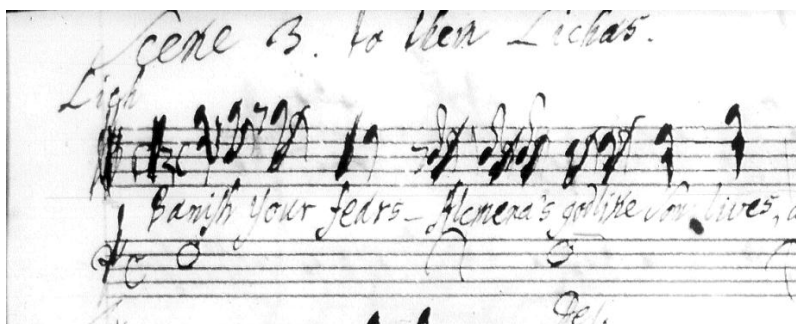 Scene 3. to them Lichas.
Banish your fears - Alcmena's godlike Son lives,